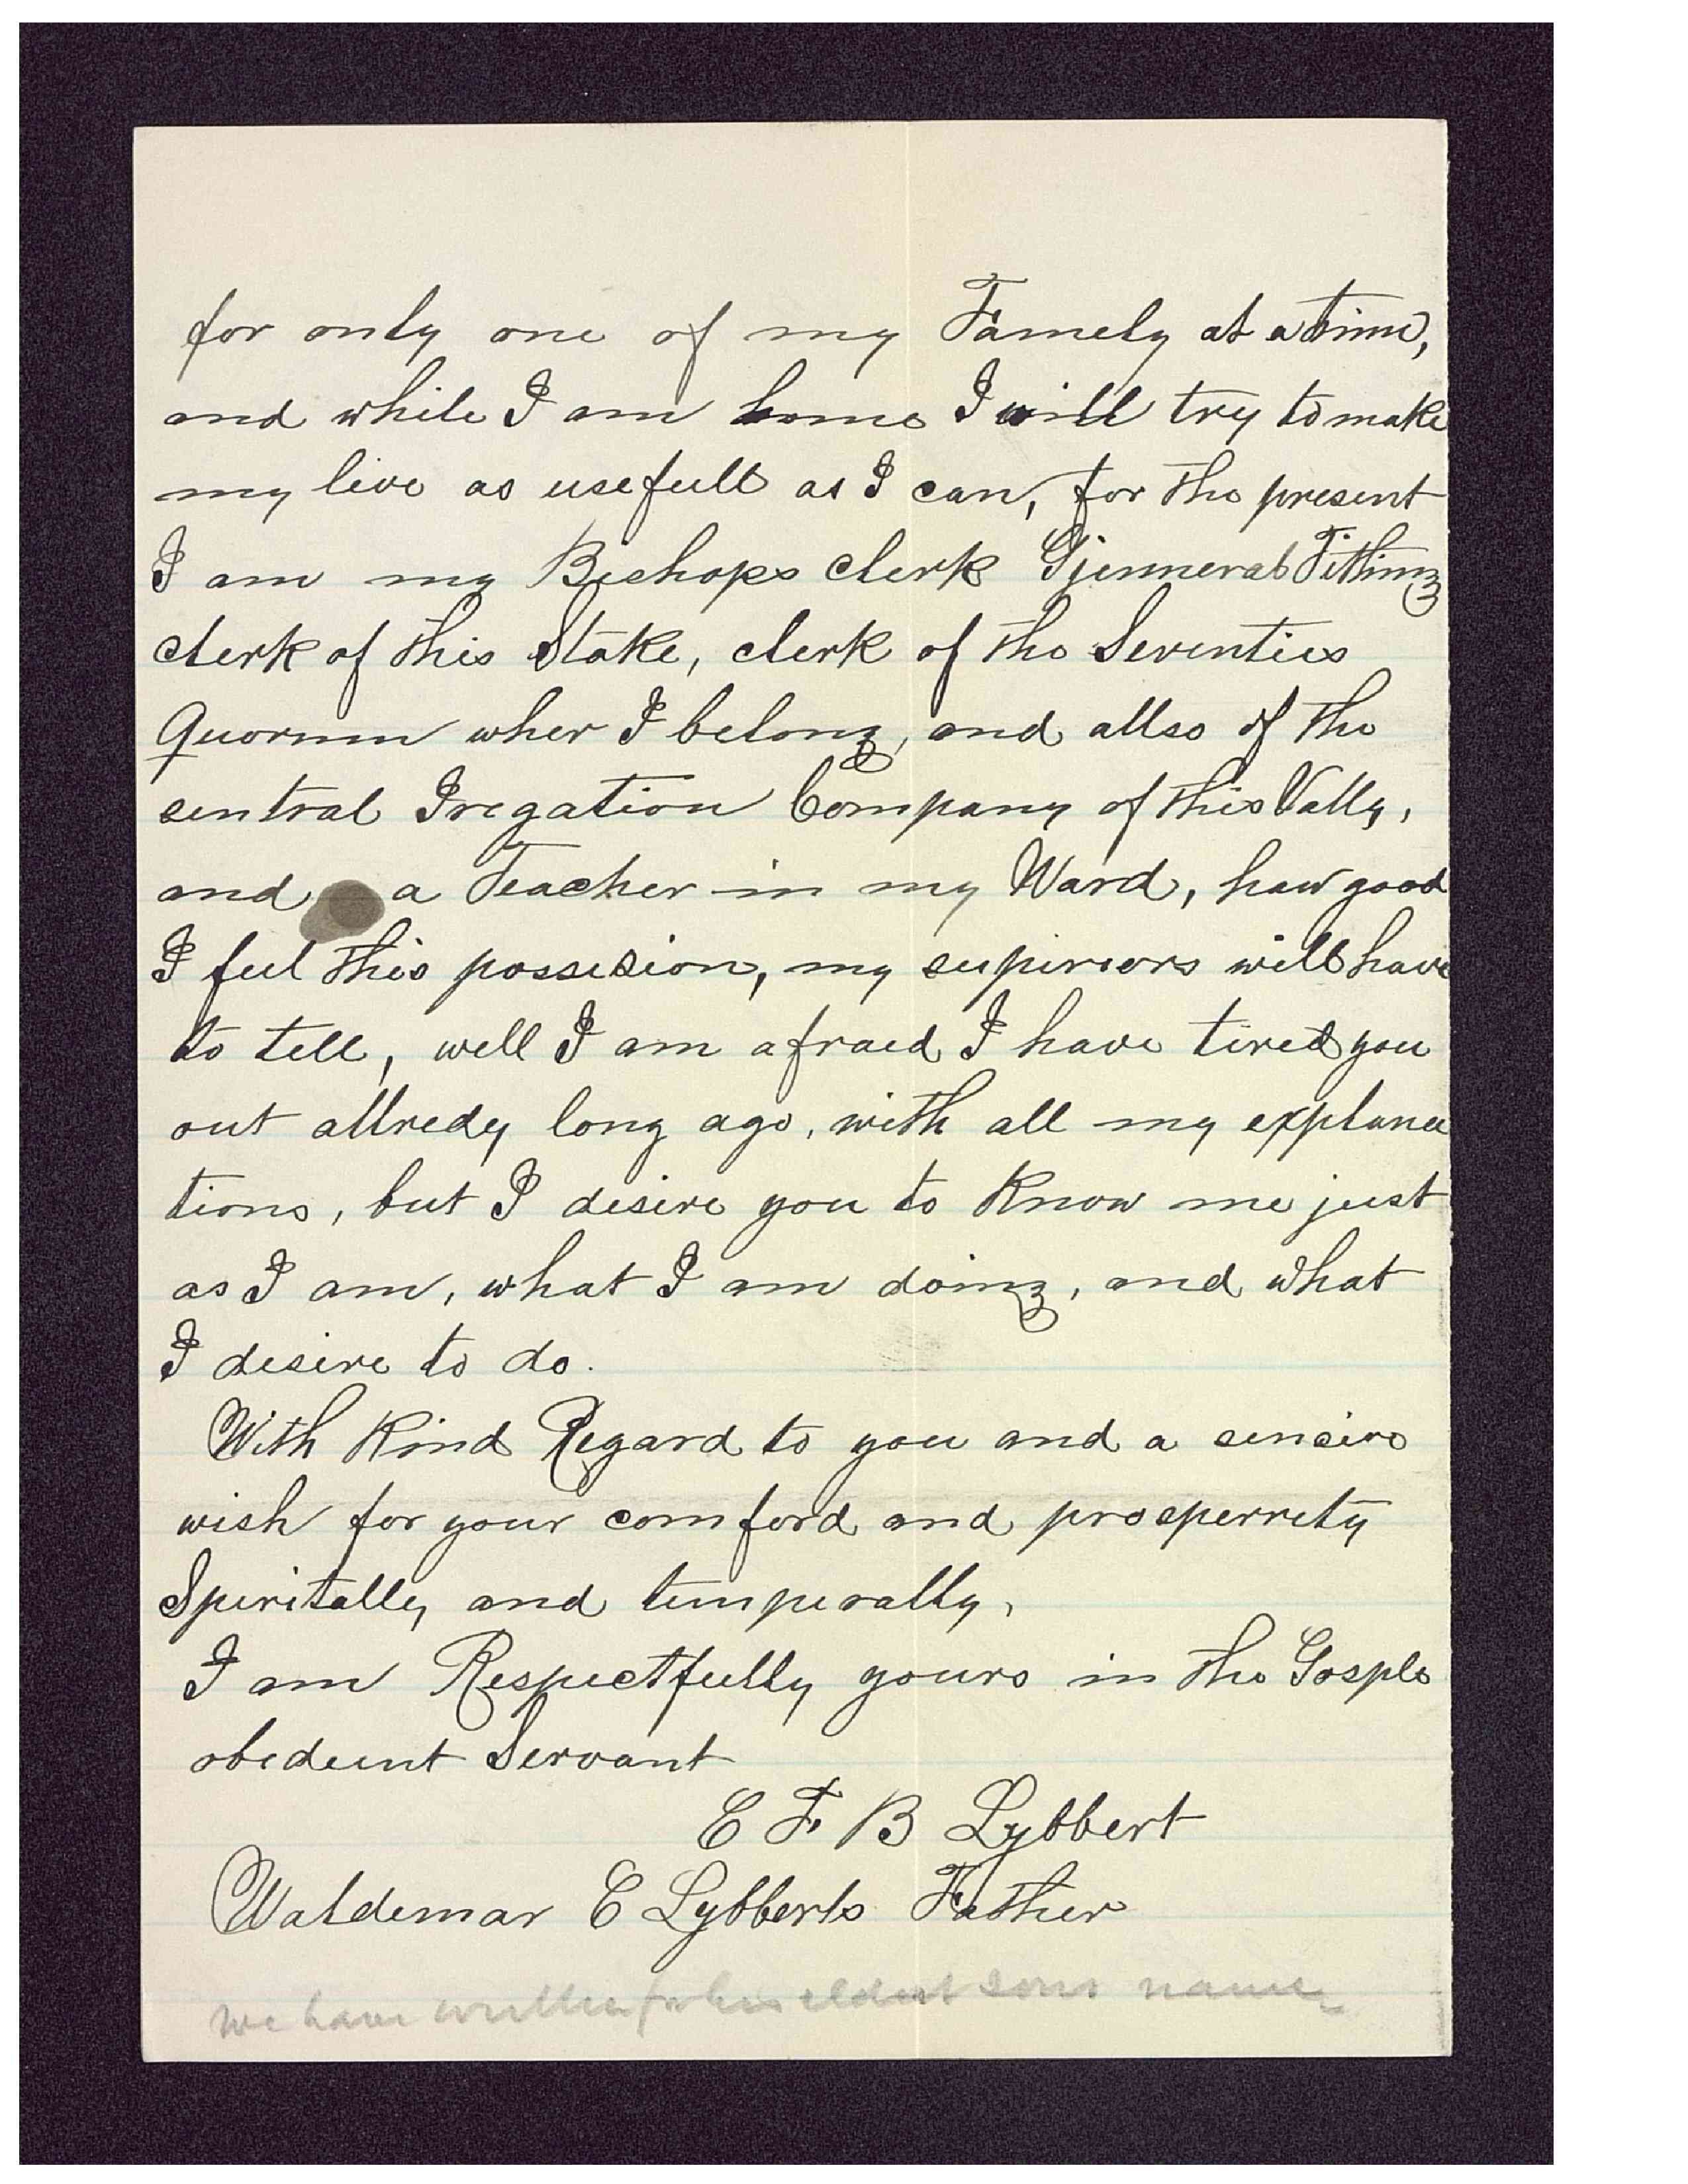 for only one of my Famely at a time,
and while I am home I will try to make
my live as usefull as I can, for the present
I am my Bishops clerk Gjenneral Tithing
clerk of this Stake, clerk of the Seventies
Quorum wher I belong, and allso of the
sentral Iregation Company of this Vally,
and a Teacher in my Ward, how good
I feel this possesion, my supiriors will have
to tell, well I am afraed I have tired you
out allredy long ago, with all my explana
tions, but I desire you to Know me just
as I am, what I am doing, and what
I desire to do.
With Kind Regard to you and a sinsire
wish for your comford and prosperrety
Spiritally and temperally,
I am Respectfully yours in the Gosple
obedient Servant
C F. B Lybbert
Waldemar C Lybberts Father
We have written for his eldest sons name